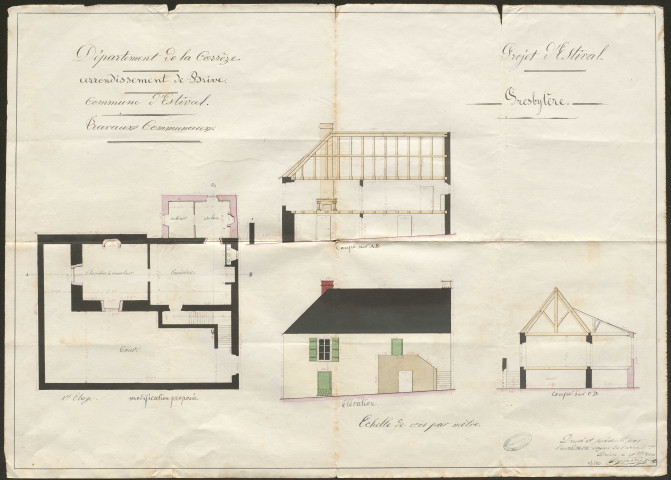 Département de la Corrèze.
arrondissement de Brive.
Commune d'Estival.
Travaux Communaux.
Projet d'Estival.
Presbytère.
Coupe sur A.B
Chambre à coucher
Cuisine
A
B
Cour
1er Etage.
modification proposée
élévation
Echelle de 0.01 par mètre.
Coupe sur C.D.
Dressé et présenté par